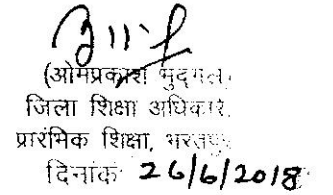 (ओमप्रकाश मुद्गल
जिला शिक्षा अधिकारी
प्रारंभिक शिक्षा, भरतपुर
दिनांक 26/6/2018